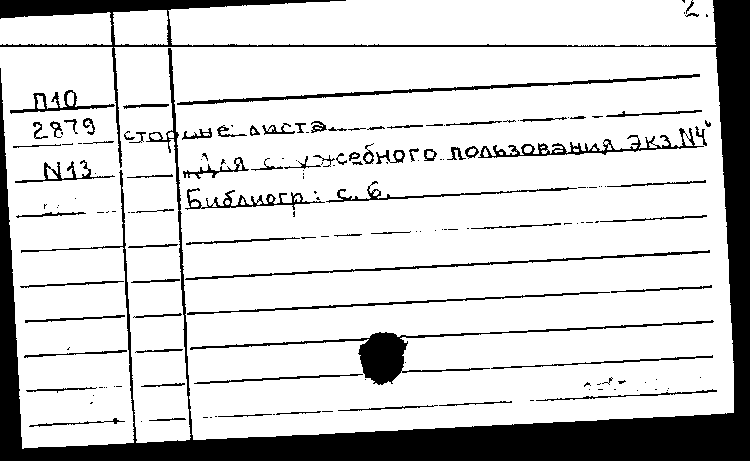 2.
П10
2879 стороне листа.
N13 „Для служебного пользования Экз. N4"
Библиогр: с. 6.